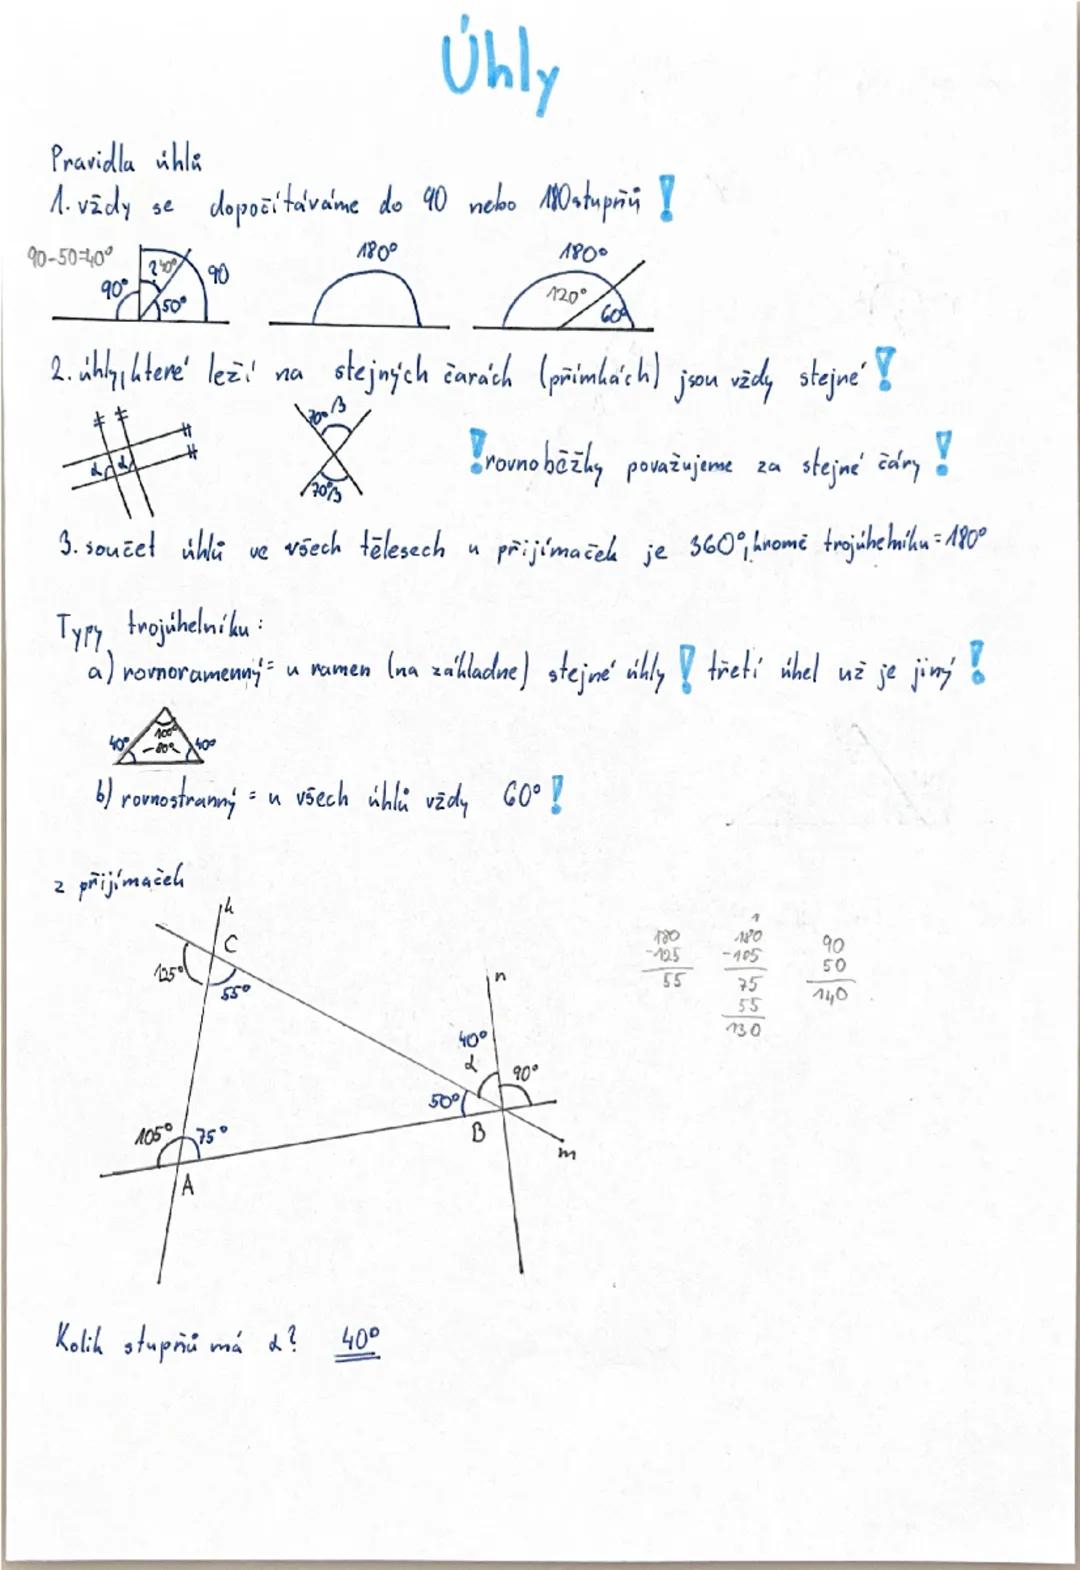 Úhly
Pravidla úhlů
1. vždy se dopočítáváme do 90 nebo 180stupňů !
90-50=40° 90° ? 40° 50° 90
180°
180° 120° 60°
2. úhly, které leží na stejných čarách (přímkách) jsou vždy stejné !
α α
70° β
70° β
! rovnoběžky považujeme za stejné čáry !
3. součet úhlů ve všech tělesech u přijímaček je 360°, kromě trojúhelníku=180°
Typy trojúhelníku:
a) rovnoramenný= u ramen (na základne) stejné úhly ! třetí úhel už je jiný !
100°
40° -80° 40°
b) rovnostranný = u všech úhlů vždy 60° !
z přijímaček
k
C
125°
55°
n
40°
α
90°
50°
B
m
105° 75°
A
180
-125
55
1
180
-105
75
55
130
90
50
140
Kolik stupňů má α? 40°